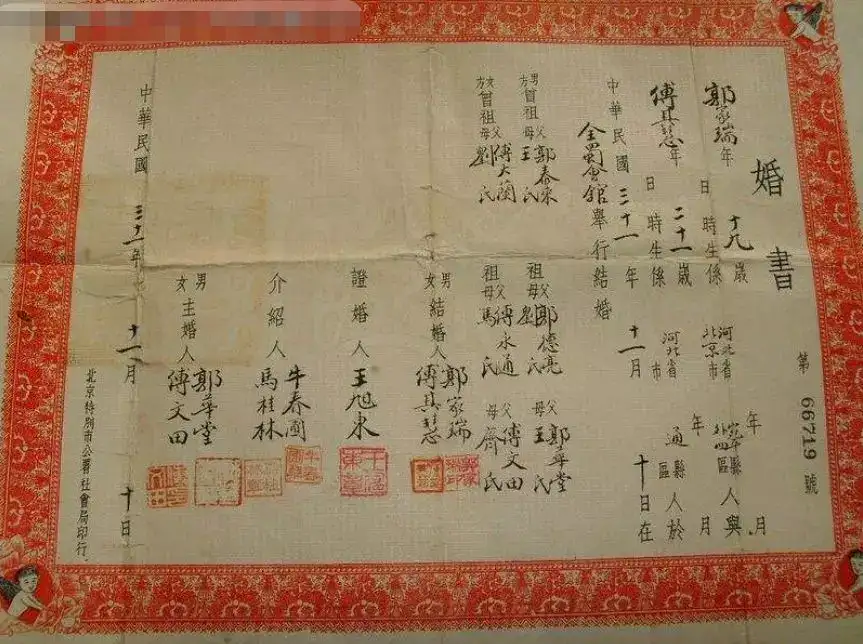 婚書
第66719號
郭家瑞年十九歲 年 月
日 時生係河北省北京市宛平縣外四區人與
傅其慧年二十一歲 年 月
日 時生係河北省 市通縣 區人於
中華民國三十一年十一月十日在
全蜀會館舉行結婚
男方曾祖父郭春來 母王氏 祖父郭德亮 母劉氏 父郭華堂 母王氏
女方曾祖父傅大蘭 母劉氏 祖父傅永通 母馬氏 父傅文田 母齊氏
男女結婚人 郭家瑞 傅其慧
證婚人 王旭東
介紹人 牛春圃 馬桂林
男女主婚人 郭華堂 傅文田
中華民國三十一年十一月十日
北京特別市公署社會局印行